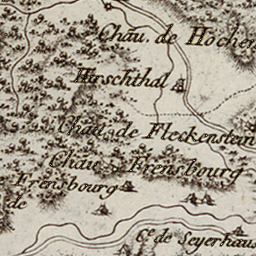 Chau. de Hochen
Hirschthal
Chau. de Fleckenstein
Chau. Frensbourg
Frensbourg
de
Cs. de Seyerhaus